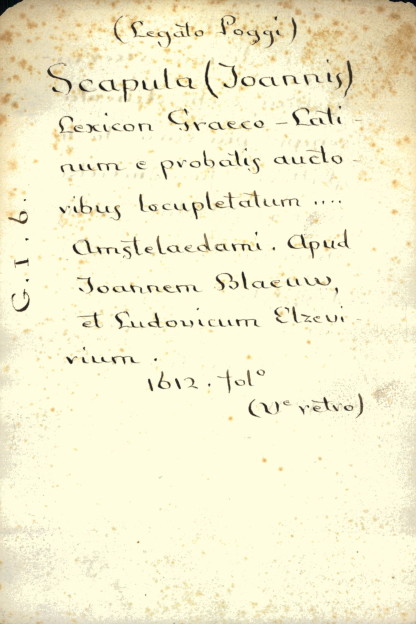 (Legato Poggi)
Scapula (Joannis)
Lexicon Graeco-Lati-
num e probatis aucto-
ribus locupletatum ....
Amstelaedami. Apud
Joannem Blaeuw,
et Ludovicum Elzevi-
rium.
1612. folº
(Vᵉ retro)
G.I.6.